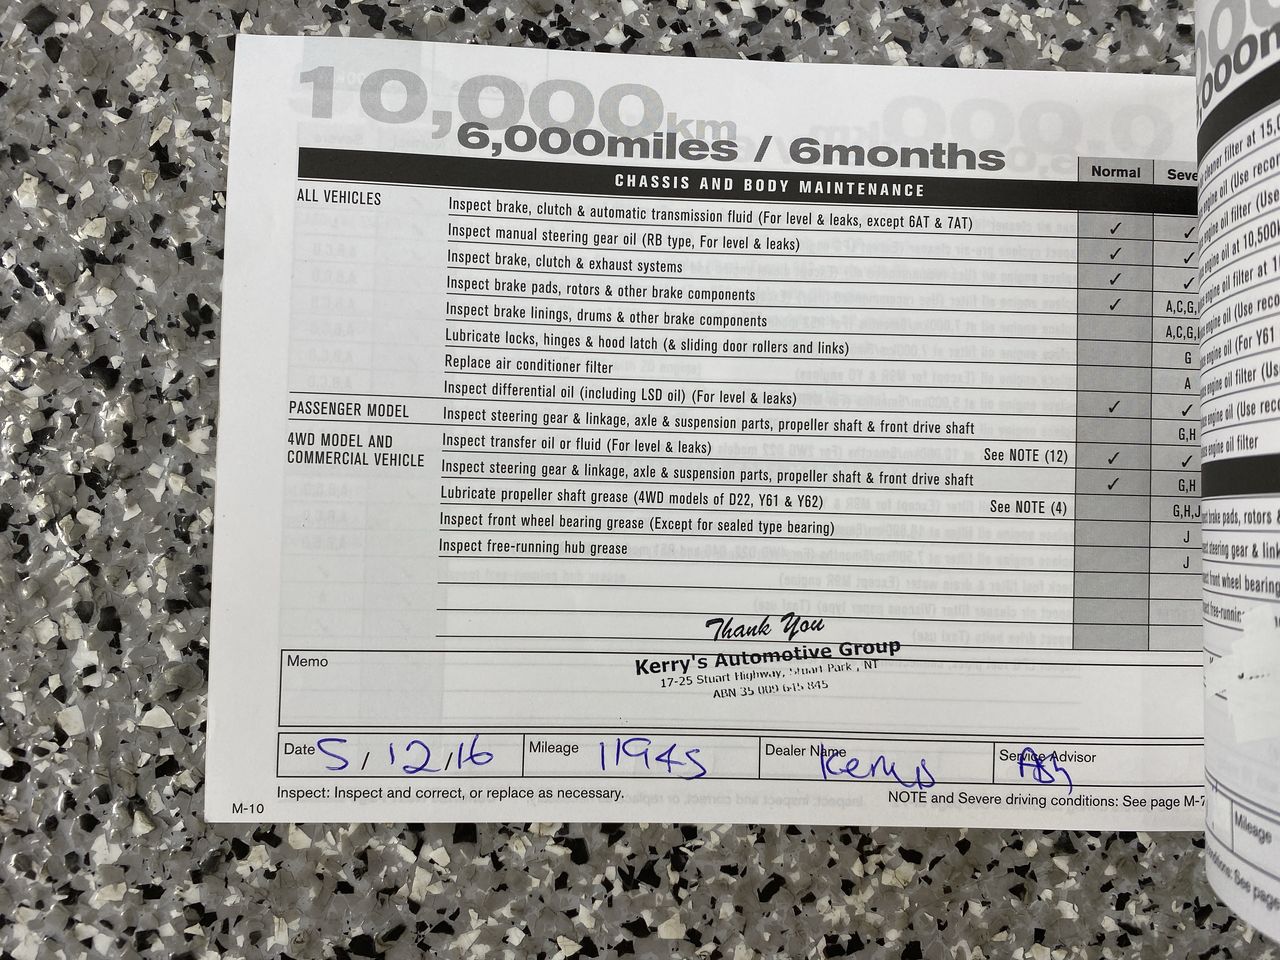 10,000km
6,000miles / 6months
CHASSIS AND BODY MAINTENANCE Normal Seve
ALL VEHICLES Inspect brake, clutch & automatic transmission fluid (For level & leaks, except 6AT & 7AT) ✓ ✓
Inspect manual steering gear oil (RB type, For level & leaks) ✓ ✓
Inspect brake, clutch & exhaust systems ✓ ✓
Inspect brake pads, rotors & other brake components ✓ A,C,G,
Inspect brake linings, drums & other brake components A,C,G,
Lubricate locks, hinges & hood latch (& sliding door rollers and links) G
Replace air conditioner filter A
Inspect differential oil (including LSD oil) (For level & leaks) ✓ ✓
PASSENGER MODEL Inspect steering gear & linkage, axle & suspension parts, propeller shaft & front drive shaft G,H
4WD MODEL AND Inspect transfer oil or fluid (For level & leaks) See NOTE (12) ✓ ✓
COMMERCIAL VEHICLE Inspect steering gear & linkage, axle & suspension parts, propeller shaft & front drive shaft ✓ G,H
Lubricate propeller shaft grease (4WD models of D22, Y61 & Y62) See NOTE (4) G,H,J
Inspect front wheel bearing grease (Except for sealed type bearing) J
Inspect free-running hub grease J
Thank You
Kerry's Automotive Group
17-25 Stuart Highway, Stuart Park, NT
ABN 35 009 645 845
Memo
Date 5/12/16 Mileage 11945 Dealer Name Kerrys Service Advisor Ash
Inspect: Inspect and correct, or replace as necessary. NOTE and Severe driving conditions: See page M-7
M-10
cleaner filter at 15,0
engine oil (Use recor
engine oil filter (Use
engine oil at 10,500k
engine oil filter at 1
engine oil (Use reco
engine oil (For Y61
engine oil filter (Us
engine oil (Use reco
engine oil filter
brake pads, rotors &
steering gear & link
front wheel bearing
free-runnin
Mileage
See page